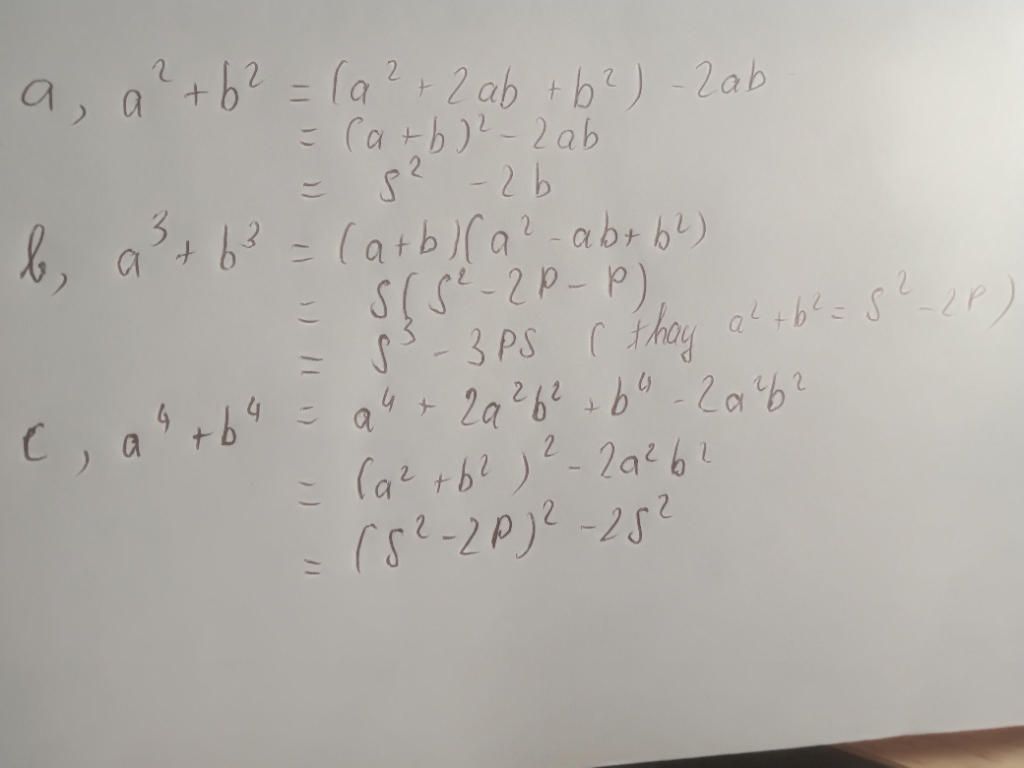 a, a² + b² = (a² + 2ab + b²) - 2ab
= (a + b)² - 2ab
= S² - 2b
b, a³ + b³ = (a+b)(a² - ab + b²)
= S(S² - 2P - P)
= S³ - 3PS ( thay a² + b² = S² - 2P)
c, a⁴ + b⁴ = a⁴ + 2a²b² + b⁴ - 2a²b²
= (a² + b²)² - 2a²b²
= (S² - 2P)² - 2S²